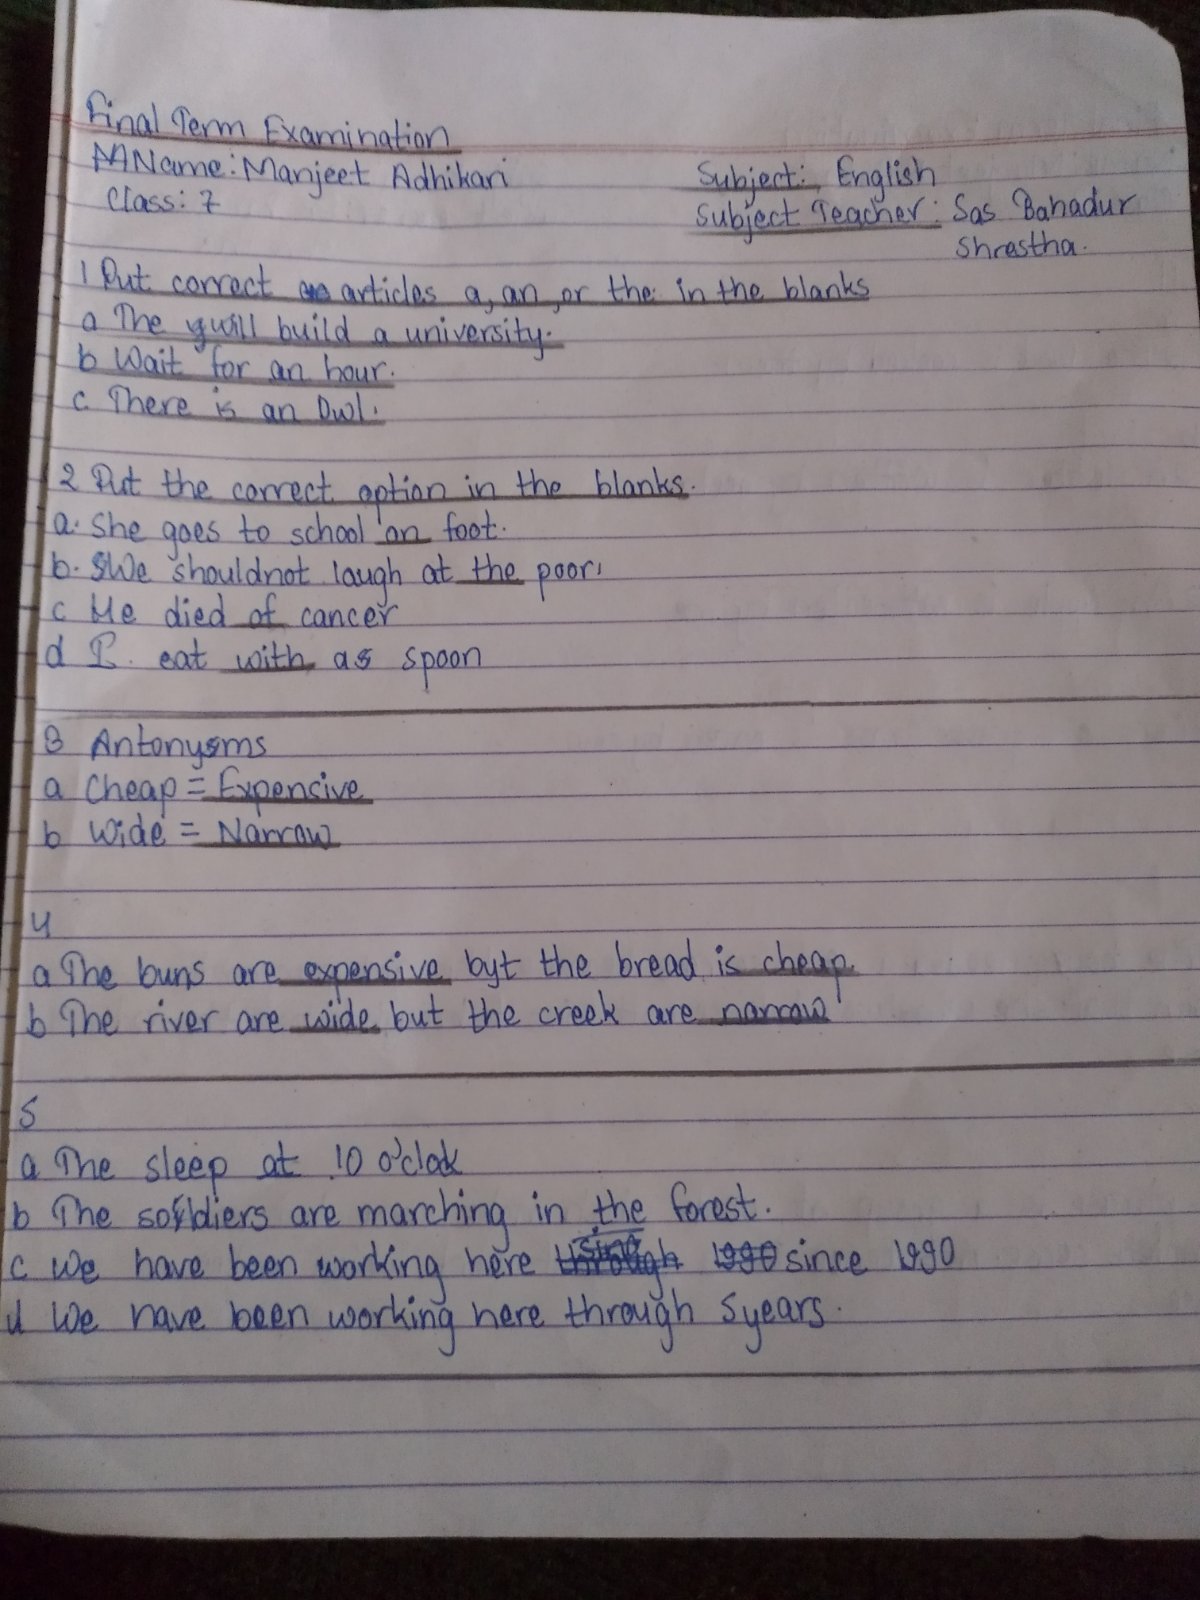 Final Term Examination
Name: Manjeet Adhikari Subject: English
Class: 7 Subject Teacher: Sas Bahadur
Shrestha.
1 Put correct articles a, an, or the in the blanks
a The will build a university.
b Wait for an hour.
c There is an Owl.
2 Put the correct option in the blanks.
a. She goes to school on foot.
b. We shouldnot laugh at the poor.
c He died of cancer
d I. eat with a spoon
3 Antonysms
a Cheap = Expensive
b Wide = Narrow
4
a The buns are expensive byt the bread is cheap.
b The river are wide but the creek are narrow
5
a The sleep at 10 o'clok
b The soldiers are marching in the forest.
c We have been working here since 1990
d We have been working here through 5years.